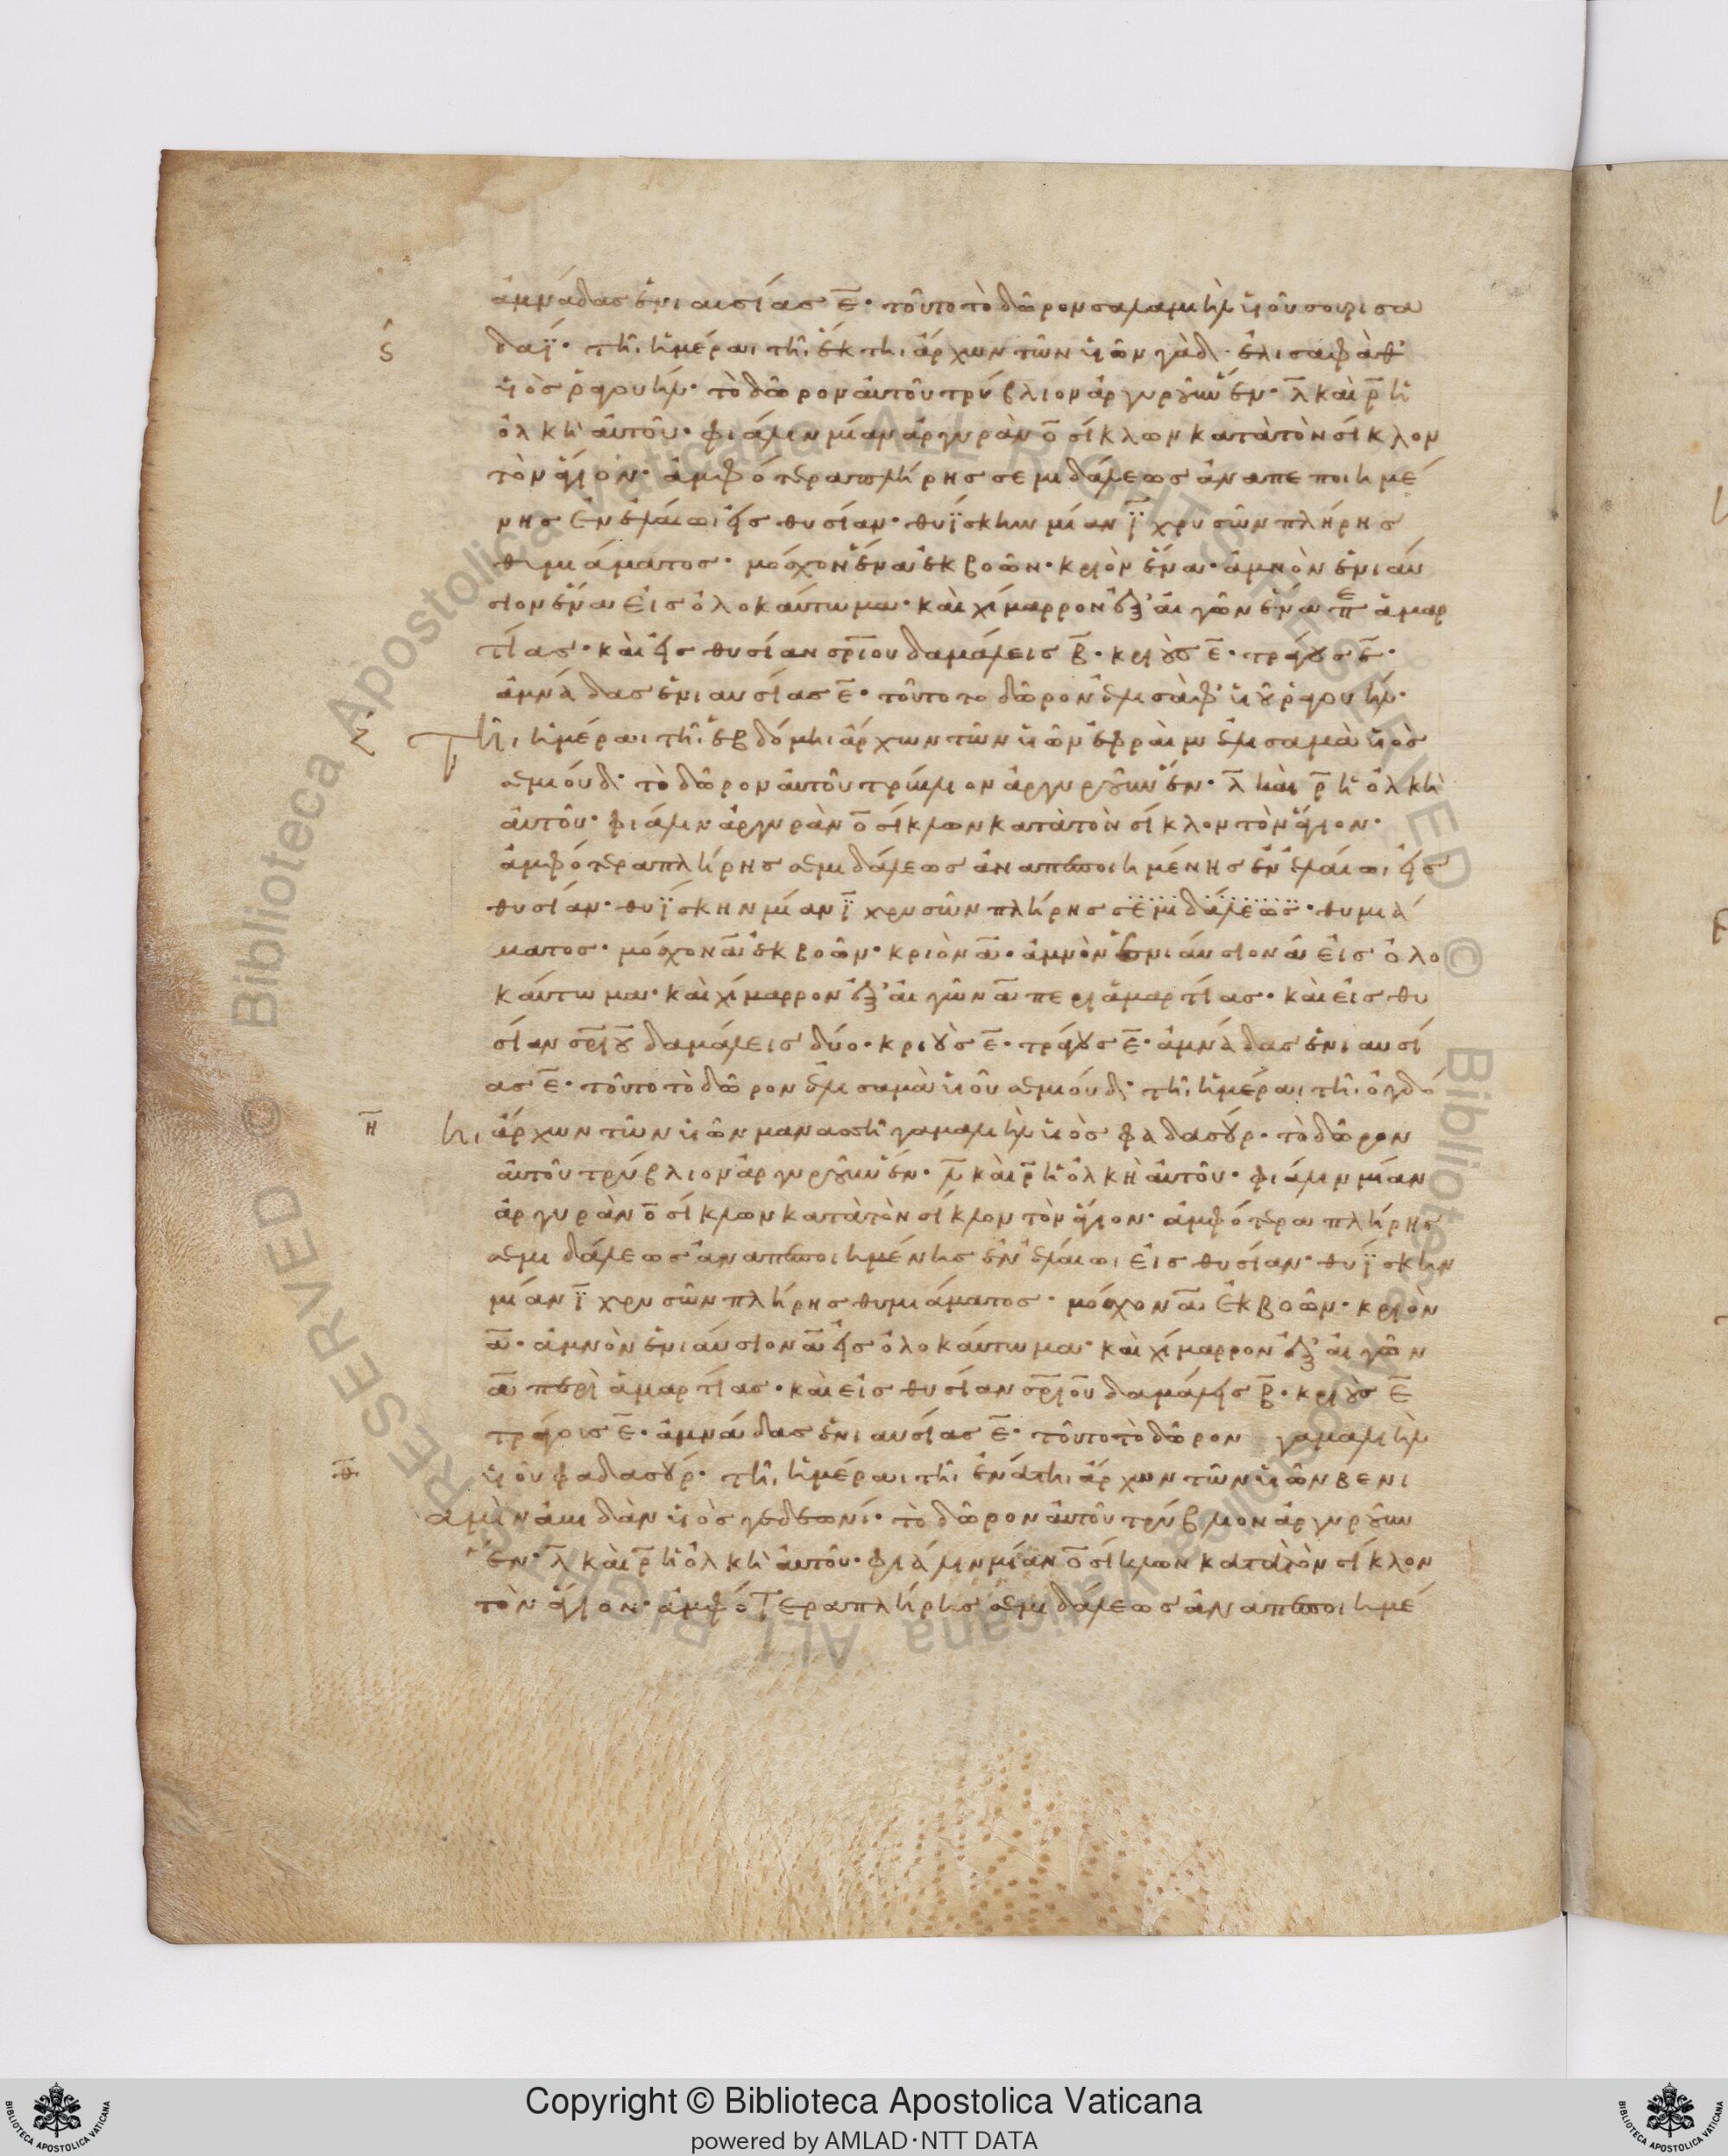 ἀμνάδας ἐνιαυσίας ε̅· τοῦτο τὸ δῶρον σαλαμιὴλ υἱοῦ σουρισα
ς δαΐ· τῆι ἡμέραι τῆι ἕκτηι ἄρχων τῶν υἱῶν γὰδ· ἐλισαφὰθ
υἱὸς ῥαγουήλ· τὸ δῶρον αὐτοῦ τρύβλιον ἀργυροῦν ἕν· λ̅ καὶ ρ̅ ἡ
ὁλκὴ αὐτοῦ· φιάλην μίαν ἀργυρὰν ο̅ σίκλων κατὰ τὸν σίκλον
τὸν ἅγιον· ἀμφότερα πλήρης σεμιδάλεως ἀναπεποιημέ
νης ἐν ἐλαίωι εἰς θυσίαν· θυΐσκην μίαν ι̅ χρυσῶν πλήρης
θυμιάματος· μόσχον ἕνα ἐκ βοῶν· κριὸν ἕνα· ἀμνὸν ἐνιαύ
σιον ἕνα εἰς ὁλοκαύτωμα· καὶ χίμαρρον ἐξ αἰγῶν ἕνα πε ἁμαρ
τίας· καὶ εἰς θυσίαν σρ̅ίου δαμάλεις β̅· κριοὺς ε̅· τράγους ε̅·
ἀμνάδας ἐνιαυσίας ε̅· τοῦτο το δῶρον ἐλισὰφ υἱοῦ ῥαγουήλ·
ζ Τῆι ἡμέραι τῆι ἑβδόμηι ἄρχων τῶν υἱῶν ἐφραὶμ ἐλισαμὰ υἱὸς
σεμιούδ· τὸ δῶρον αὐτοῦ τρύβλιον ἀργυροῦν ἕν· λ̅ καὶ ρ̅ ἡ ὁλκὴ
αὐτοῦ· φιάλην ἀργυρὰν ο̅ σίκλων κατὰ τὸν σίκλον τὸν ἅγιον·
ἀμφότερα πλήρης σεμιδάλεως ἀναπεποιημένης ἐν ἐλαίωι εἰς
θυσίαν· θυΐσκην μίαν ι̅ χρυσῶν πλήρης σεμιδάλεως· θυμιά
ματος· μόσχον α̅ ἐκ βοῶν· κριὸν α̅· ἀμνὸν ἐνιαύσιον α̅ εἰς ὁλο
καύτωμα· καὶ χίμαρρον ἐξ αἰγῶν α̅ περι ἁμαρτίας· καὶ εἰς θυ
σίαν σρ̅ιου δαμάλεις δύο· κριοὺς ε̅· τράγους ε̅· ἀμνάδας ἐνιαυσί
ας ε̅· τοῦτο τὸ δῶρον ἐλισαμὰ υἱοῦ σεμιούδ· τῆι ἡμέραι τῆι ὀγδό
η̅ ηι ἄρχων τῶν υἱῶν μανασσῆ γαμαλιὴλ υἱὸς φαδασούρ· τὸ δῶρον
αὐτοῦ τρύβλιον ἀργυροῦν ἕν· λ̅ καὶ ρ̅ ἡ ὁλκὴ αὐτοῦ· φιάλην μίαν
ἀργυρὰν ο̅ σίκλων κατὰ τὸν σίκλον τὸν ἅγιον· ἀμφότερα πλήρης
σεμιδάλεως ἀναπεποιημένης ἐν ἐλαίωι εἰς θυσίαν· θυΐσκην
μίαν ι̅ χρυσῶν πλήρης θυμιάματος· μόσχον α̅ ἐκ βοῶν· κριὸν
α̅· ἀμνὸν ἐνιαύσιον α̅ εἰς ὁλοκαύτωμα· καὶ χίμαρρον ἐξ αἰγῶν
α̅ περὶ ἁμαρτίας· καὶ εἰς θυσίαν σρ̅ιου δαμάλεις β̅· κριοὺς ε̅
τράγους ε̅· ἀμνάδας ἐνιαυσίας ε̅· τοῦτο τὸ δῶρον γαμαλιὴλ
θ̅ υἱοῦ φαδασούρ· τῆι ἡμέραι τῆι ἐνάτηι ἄρχων τῶν υἱῶν βενι
αμὶν ἀβιδὰν υἱὸς γεδεωνί· τὸ δῶρον αὐτοῦ τρύβλιον ἀργυροῦν
ἕν· λ̅ καὶ ρ̅ ἡ ὁλκὴ αὐτοῦ· φιάλην μίαν ο̅ σίκλων κατὰ τὸν σίκλον
τὸν ἅγιον· ἀμφότερα πλήρης σεμιδάλεως ἀναπεποιημέ
Copyright © Biblioteca Apostolica Vaticana
powered by AMLAD·NTT DATA